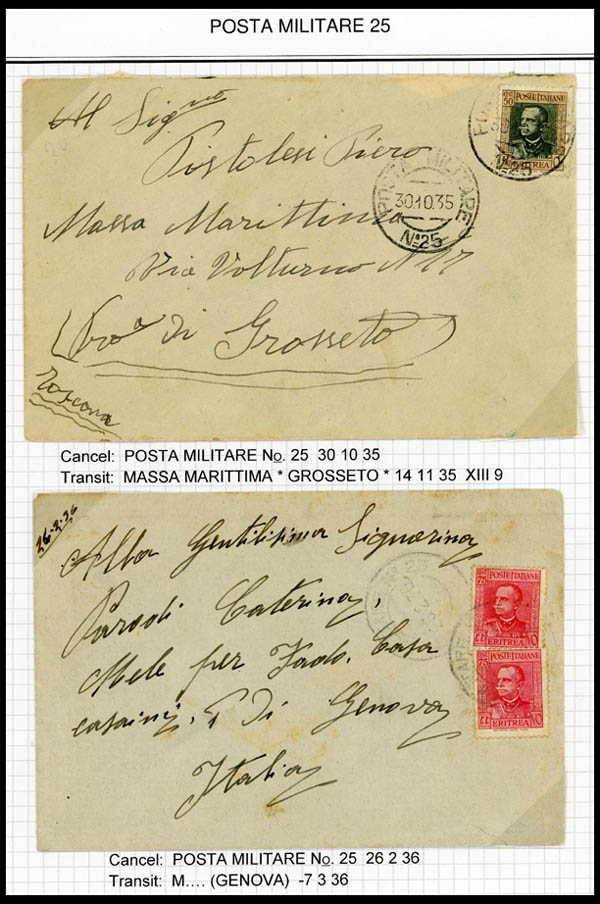 POSTA MILITARE 25
Al Signor
Pistolesi Piero
Massa Marittima
Via Volturno N 17
(Prov a di Grosseto)
Toscana
POSTA MILITARE
30.10.35
No 25
No 25
POSTE ITALIANE
ERITREA
Cancel: POSTA MILITARE No. 25 30 10 35
Transit: MASSA MARITTIMA * GROSSETO * 14 11 35 XIII 9
26-2-36
Alla Gentilissima Signorina
Parodi Caterina,
Mele per
di Genova
Italia
No 25
POSTE ITALIANE
ERITREA
POSTE ITALIANE
ERITREA
Cancel: POSTA MILITARE No. 25 26 2 36
Transit: M.... (GENOVA) -7 3 36